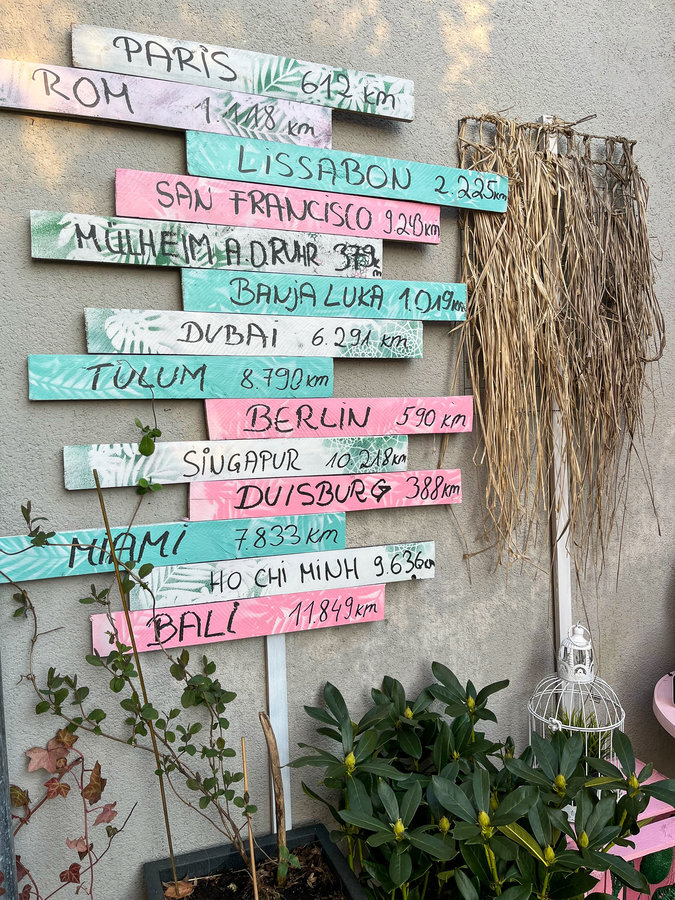 PARIS 612 km
ROM 1.118 km
LISSABON 2.225 km
SAN FRANCISCO 9.243 km
MÜLHEIM A.D.RUHR 379 km
BANJA LUKA 1.019 km
DUBAI 6.291 km
TULUM 8.790 km
BERLIN 590 km
SINGAPUR 10.218 km
DUISBURG 388 km
MIAMI 7.833 km
HO CHI MINH 9.636 km
BALI 11.849 km